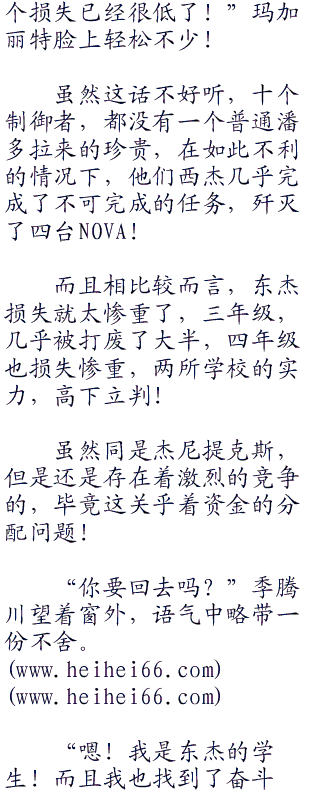 个损失已经很低了！”玛加
丽特脸上轻松不少！
虽然这话不好听，十个
制御者，都没有一个普通潘
多拉来的珍贵，在如此不利
的情况下，他们西杰几乎完
成了不可完成的任务，歼灭
了四台NOVA！
而且相比较而言，东杰
损失就太惨重了，三年级，
几乎被打废了大半，四年级
也损失惨重，两所学校的实
力，高下立判！
虽然同是杰尼提克斯，
但是还是存在着激烈的竞争
的，毕竟这关乎着资金的分
配问题！
“你要回去吗？”季腾
川望着窗外，语气中略带一
份不舍。
(www.heihei66.com)
(www.heihei66.com)
“嗯！我是东杰的学
生！而且我也找到了奋斗